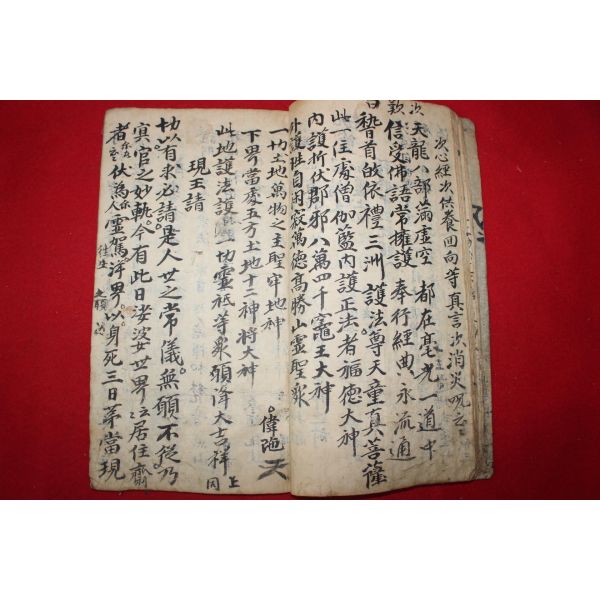 次心經次供養回向等真言次消災呪云
次天龍八部滿虛空 都在毫光一道中
歎信受佛語常擁護 奉行經典永流通
曰稽首皈依禮三洲護法尊天童真菩薩
此一住處僧伽藍內護正法者福德大神
內護折伏郡邪八萬四千竈王大神
外護 自困寂萬德高勝山靈聖衆
一切土地萬物之主聖牢地神 偉䭾天
下界當處五方土地十二神將大神
此地護法護 一切靈祗等衆願降大吉祥 上同
現王請
切以有求必請是人世之常儀無願不從乃
冥官之妙軌今有此日娑婆世界云云居住齋
者云云伏爲亡人靈駕 往生之願 洋界以身死三日茅當現